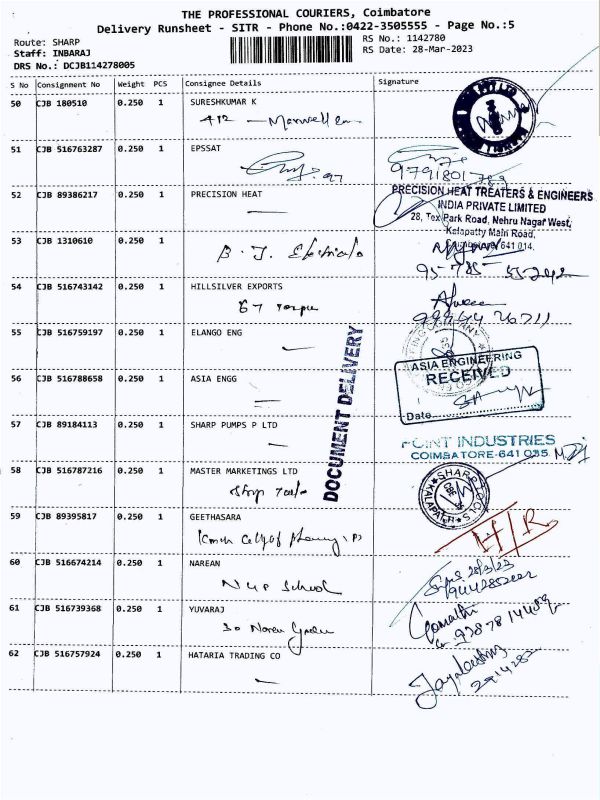 THE PROFESSIONAL COURIERS, Coimbatore
Delivery Runsheet - SITR - Phone No.:0422-3505555 - Page No.:5
Route: SHARP
RS No.: 1142780
Staff: INBARAJ
RS Date: 28-Mar-2023
DRS No.: DCJB114278005
S No Consignment No Weight PCS Consignee Details Signature
50 CJB 180510 0.250 1 SURESHKUMAR K
412 — Maxwell
51 CJB 516763287 0.250 1 EPSSAT
52 CJB 89386217 0.250 1 PRECISION HEAT
PRECISION HEAT TREATERS & ENGINEERS
INDIA PRIVATE LIMITED
28, Tex Park Road, Nehru Nagar West,
Kalapatty Main Road,
Coimbatore-641 014.
53 CJB 1310610 0.250 1
B. J. Electricals
54 CJB 516743142 0.250 1 HILLSILVER EXPORTS
55 CJB 516759197 0.250 1 ELANGO ENG
DOCUMENT DELIVERY
56 CJB 516788658 0.250 1 ASIA ENGG
ASIA ENGINEERING
RECEIVED
Date
57 CJB 89184113 0.250 1 SHARP PUMPS P LTD
POINT INDUSTRIES
COIMBATORE-641 035
58 CJB 516787216 0.250 1 MASTER MARKETINGS LTD
Sharp Tools
SHARP TOOLS
KALAPATTI
59 CJB 89395817 0.250 1 GEETHASARA
College of Pharmacy
H/R
60 CJB 516674214 0.250 1 NAREAN
School
28/3/23
61 CJB 516739368 0.250 1 YUVARAJ
Gomathi
62 CJB 516757924 0.250 1 HATARIA TRADING CO